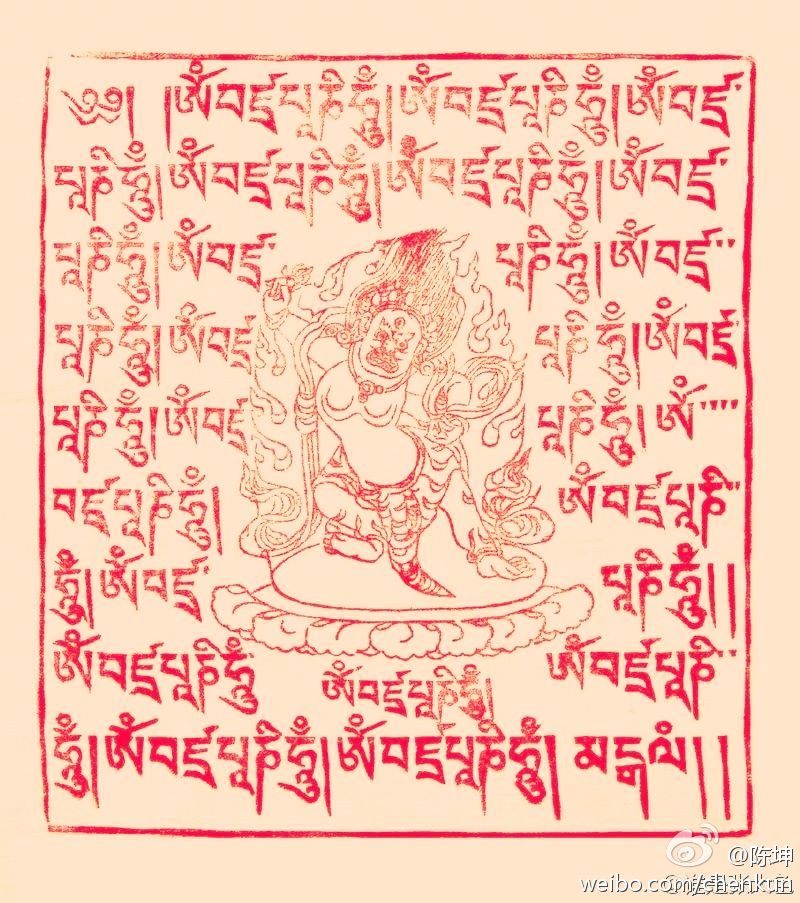 ༄༅། །ཨོཾབཛྲཔཱཎིཧཱུྃ།ཨོཾབཛྲཔཱཎིཧཱུྃ།ཨོཾབཛྲ་
པཱཎིཧཱུྃ།ཨོཾབཛྲཔཱཎིཧཱུྃ།ཨོཾབཛྲཔཱཎིཧཱུྃ།ཨོཾབཛྲ་
པཱཎིཧཱུྃ།ཨོཾབཛྲ་ པཱཎིཧཱུྃ།ཨོཾབཛྲ་་
པཱཎིཧཱུྃ།ཨོཾབཛྲ པཱཎིཧཱུྃ།ཨོཾབཛྲ་
པཱཎིཧཱུྃ།ཨོཾབཛྲ པཱཎིཧཱུྃ། ཨོཾ་་་་
བཛྲཔཱཎིཧཱུྃ། ཨོཾབཛྲཔཱཎི་་
ཧཱུྃ།ཨོཾབཛྲ་ པཱཎིཧཱུྃ།།
ཨོཾབཛྲཔཱཎིཧཱུྃ ཨོཾབཛྲཔཱཎི་་
ཨོཾབཛྲཔཱཎིཧཱུྃ།
ཧཱུྃ།ཨོཾབཛྲཔཱཎིཧཱུྃ།ཨོཾབཛྲཔཱཎིཧཱུྃ། མངྒལཾ།།
@陈坤
weibo.com/chenkun